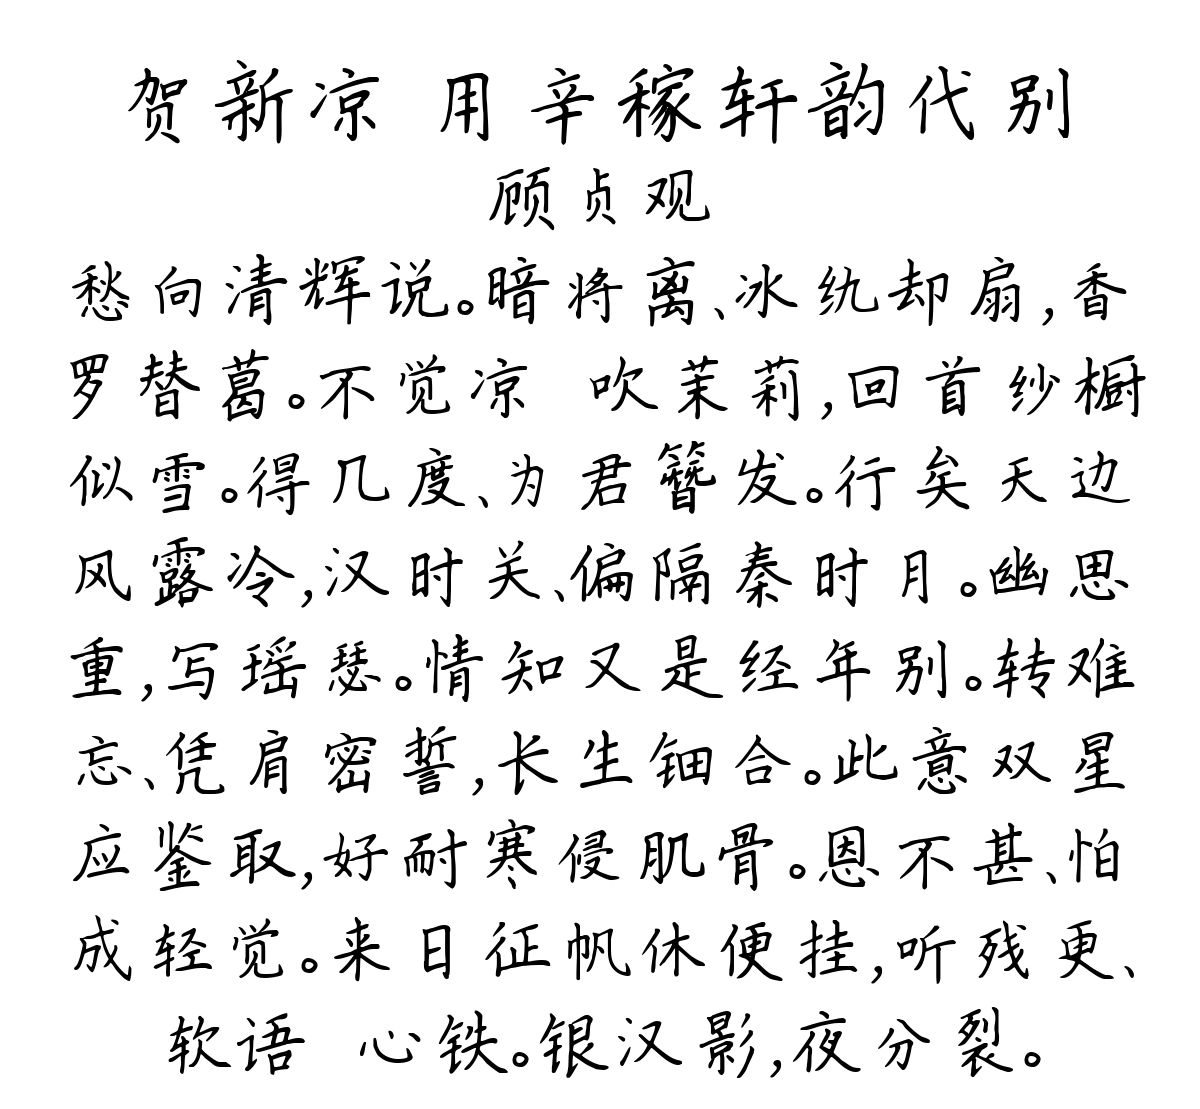 贺新凉 用辛稼轩韵代别
顾贞观
愁向清辉说。暗将离、冰纨却扇,香
罗替葛。不觉凉 吹茉莉,回首纱橱
似雪。得几度、为君簪发。行矣天边
风露冷,汉时关、偏隔秦时月。幽思
重,写瑶瑟。情知又是经年别。转难
忘、凭肩密誓,长生钿合。此意双星
应鉴取,好耐寒侵肌骨。恩不甚、怕
成轻觉。来日征帆休便挂,听残更、
软语 心铁。银汉影,夜分裂。